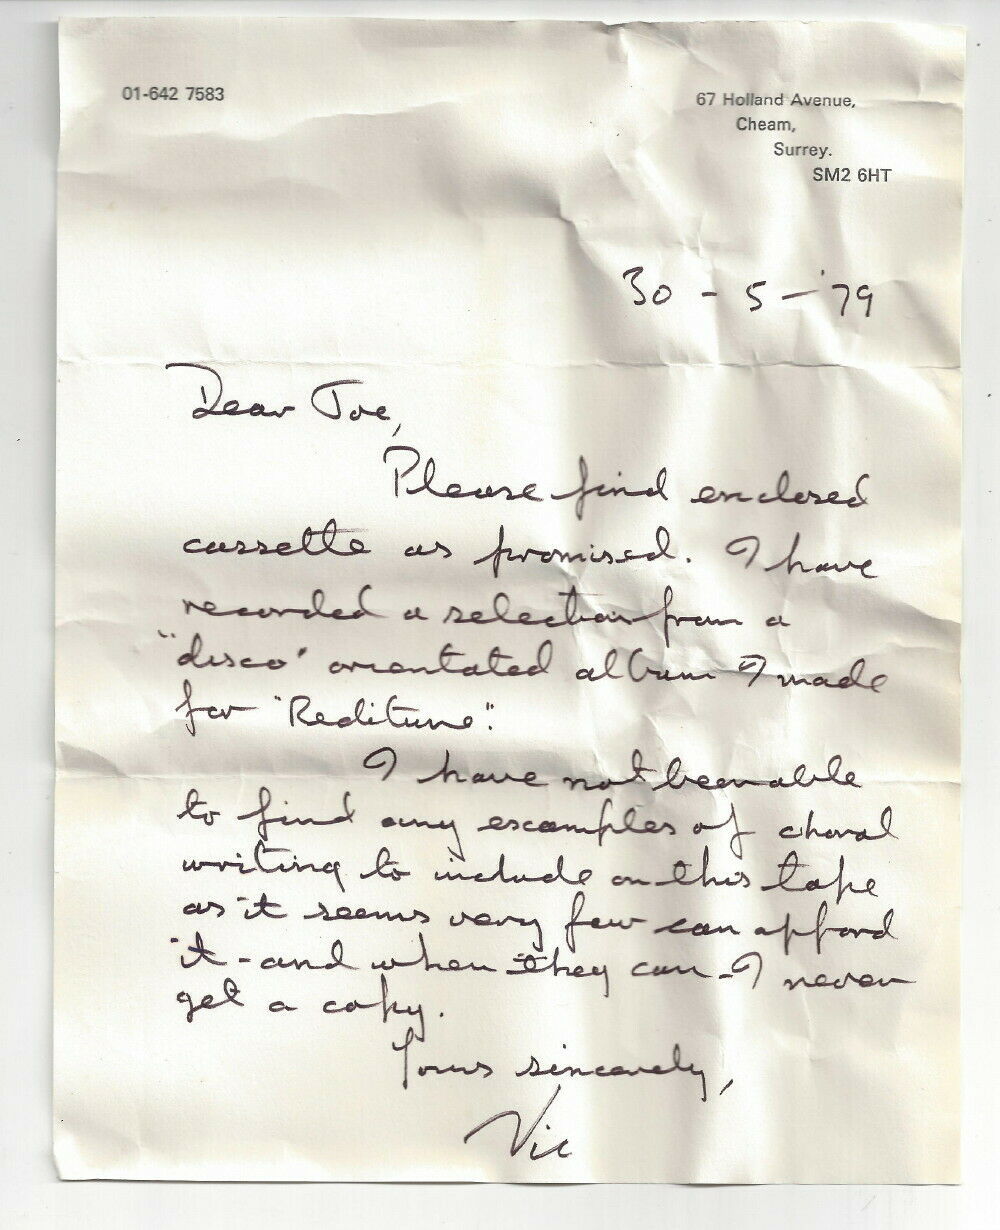 01-642 7583
67 Holland Avenue,
Cheam,
Surrey.
SM2 6HT
30 - 5 - '79
Dear Joe,
Please find enclosed
cassette as promised. I have
recorded a selection from a
"disco" orientated album I made
for "Reditune".
I have not been able
to find any examples of choral
writing to include on this tape
as it seems very few can afford
it - and when they can - I never
get a copy.
Yours sincerely,
Vic